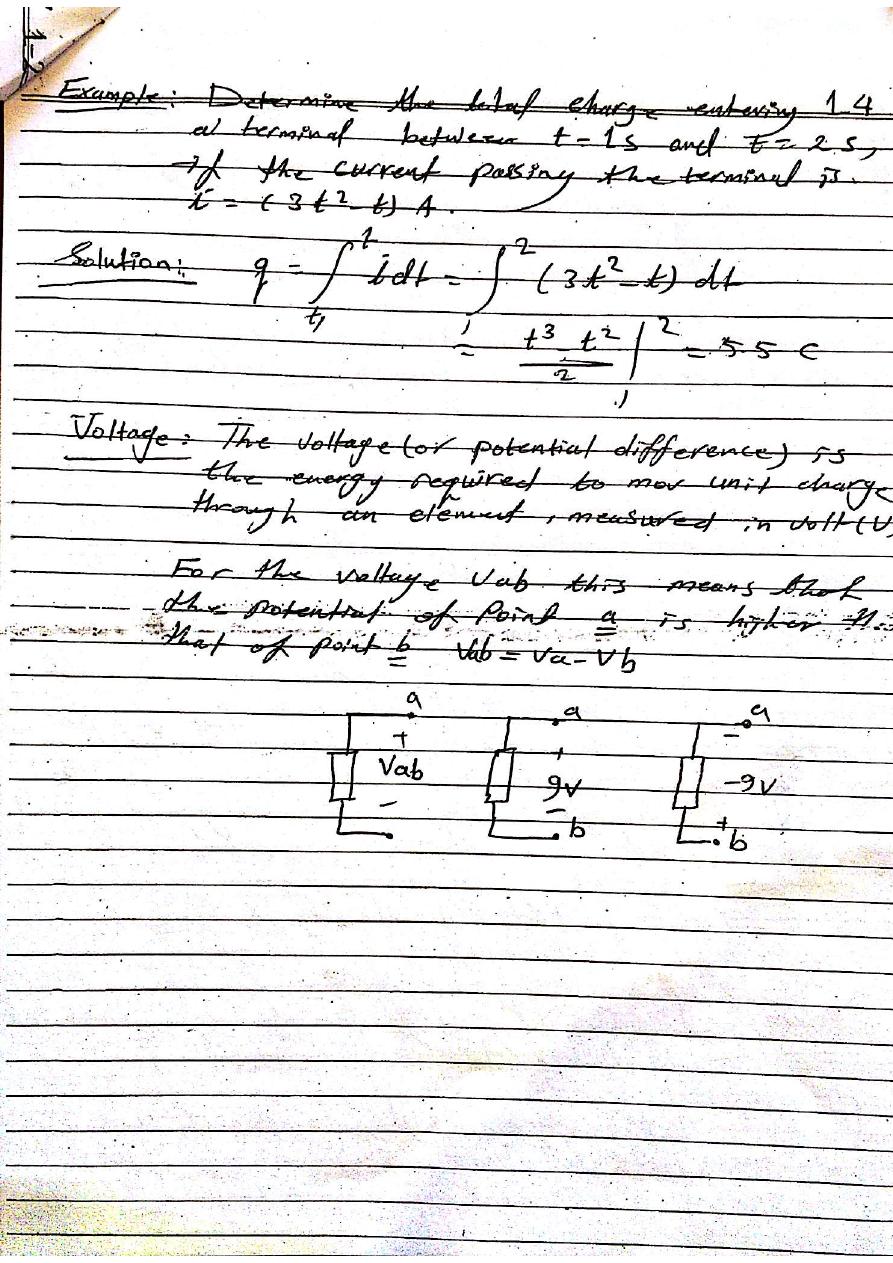 1-2
Example: Determine the total charge entering 1-4
a terminal between t = 1s and t = 2 s,
If the current passing the terminal is.
i = (3t² - t) A.
Solution: q = ∫ t₁ 2 i dt = ∫ 1 2 (3t² - t) dt
= t³ - t² / 2 | 1 2 = 5.5 C
Voltage: The voltage (or potential difference) is
the energy required to mov unit charge
through an element, measured in volt (V)
For the voltage Vab this means that
the potential of Point a is higher
that of point b Vab = Va - Vb
a a a
+ + -
Vab 9V -9V
- - +
b b